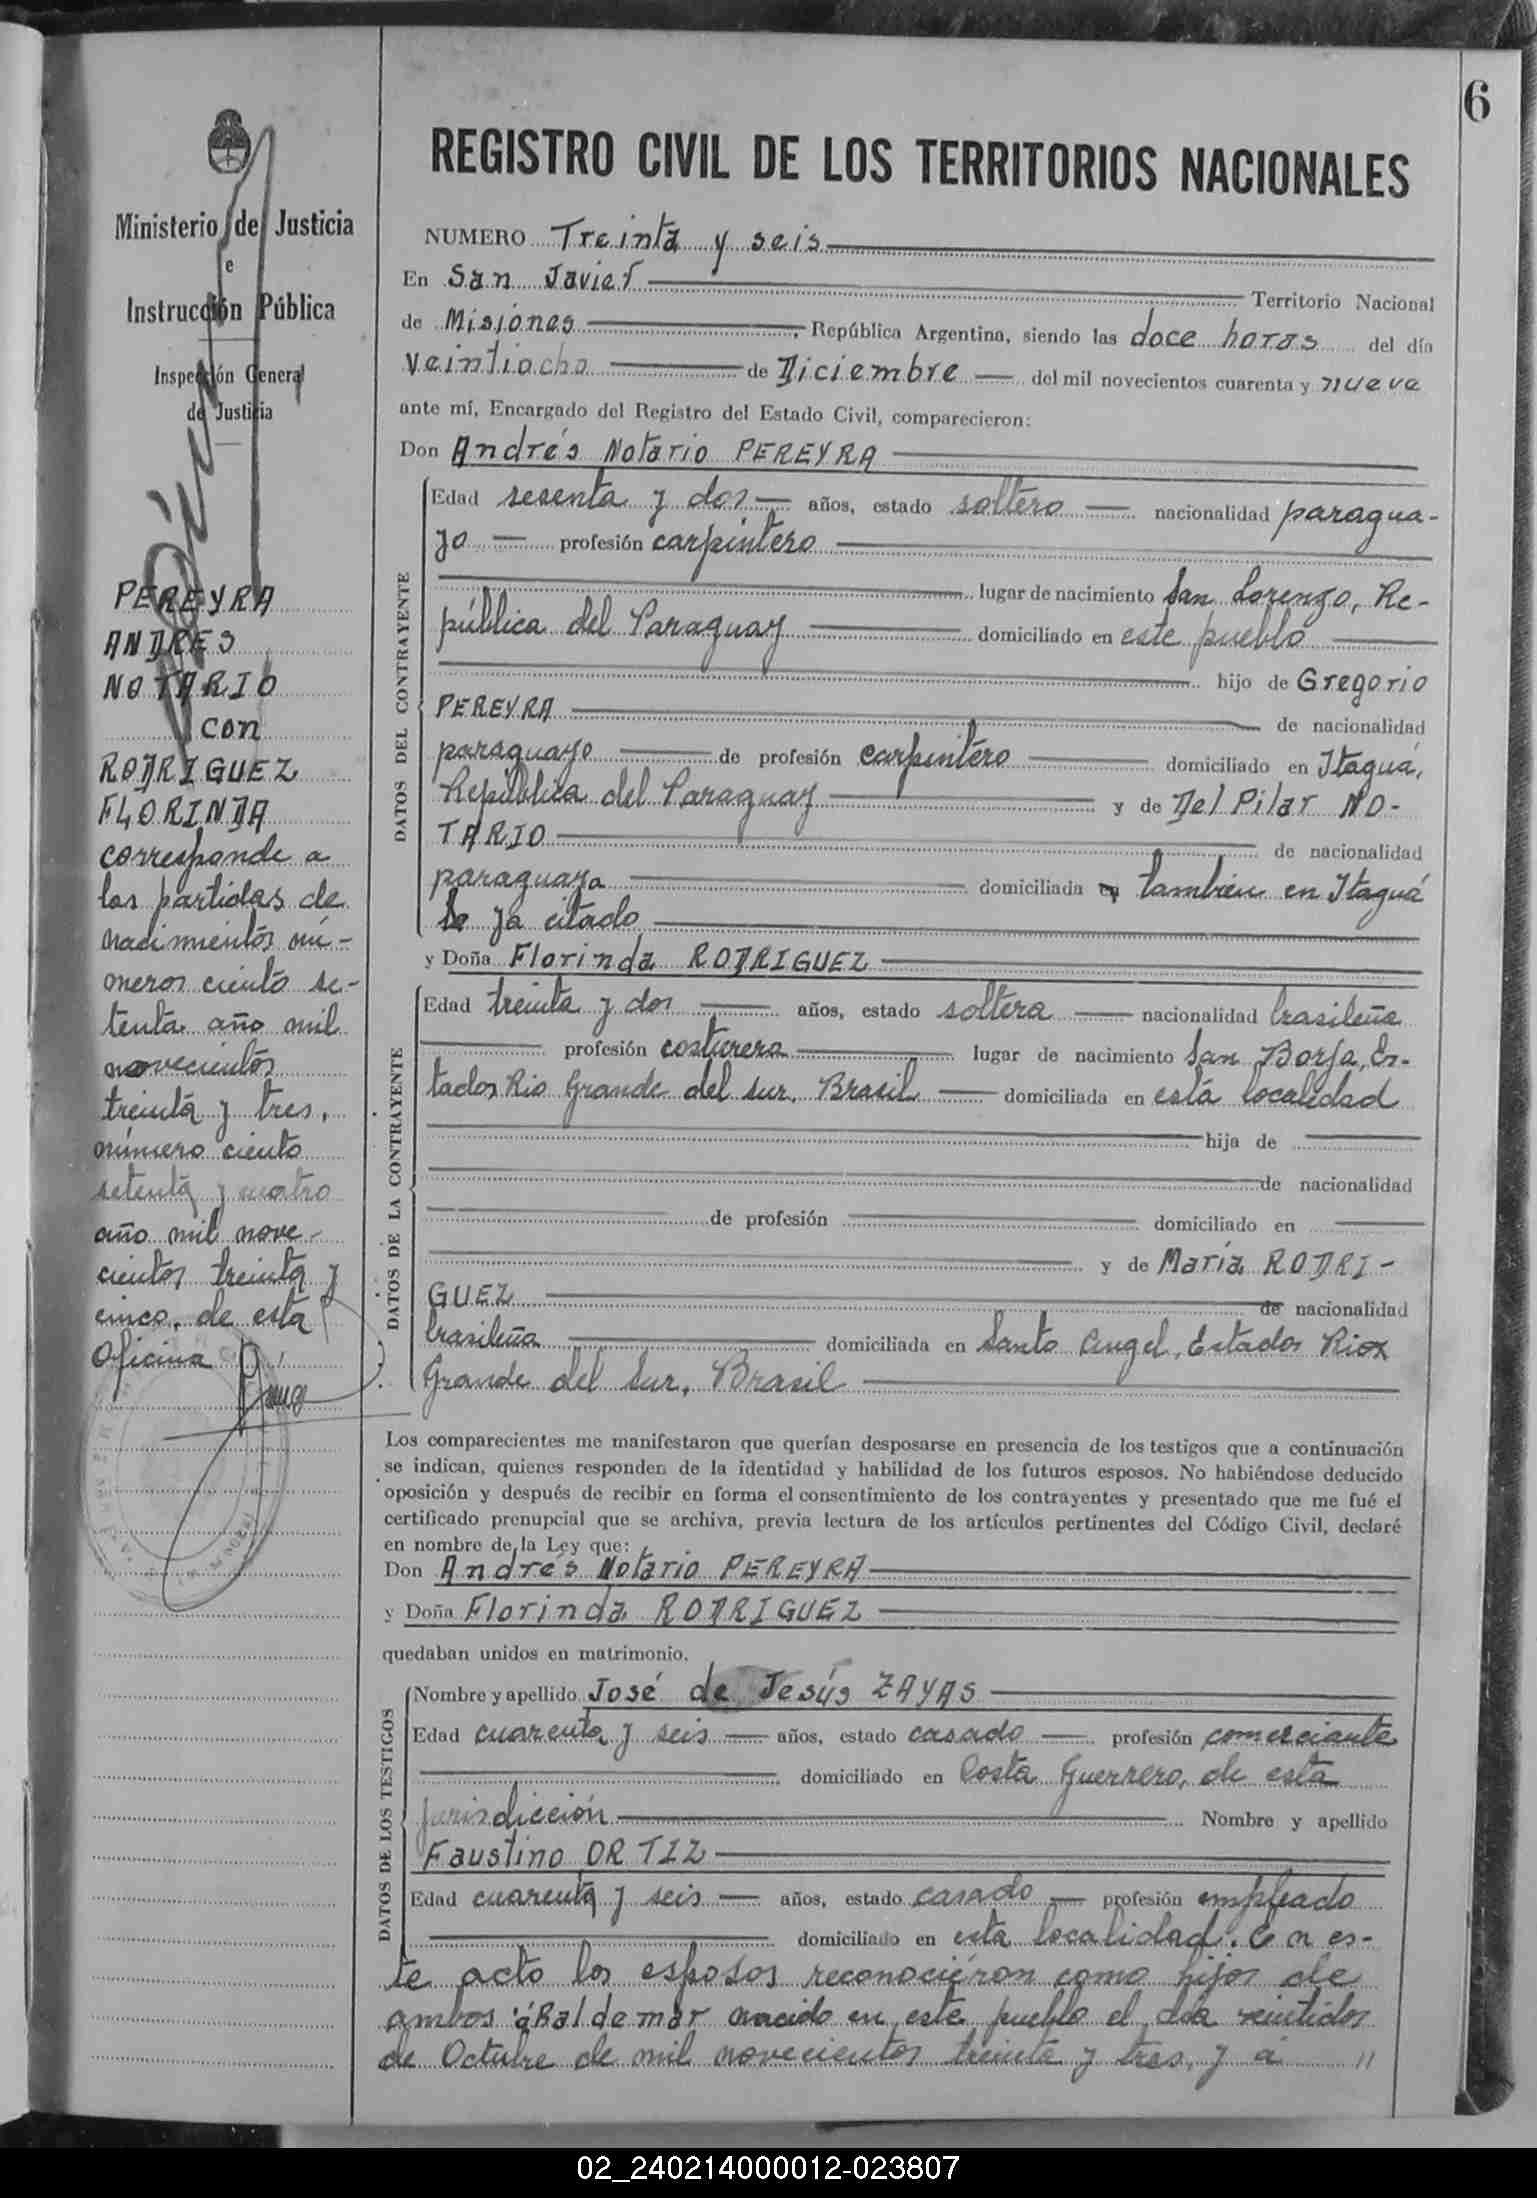 6
REGISTRO CIVIL DE LOS TERRITORIOS NACIONALES
Ministerio de Justicia
e
Instrucción Pública
Inspección General
de Justicia
PEREYRA
ANDRES
NOTARIO
con
RODRIGUEZ
FLORINDA
corresponde a
las partidas de
nacimientos nú-
meros ciento se-
tenta año mil
novecientos
treinta y tres,
número ciento
setenta y cuatro
año mil nove-
cientos treinta y
cinco, de esta
Oficina
NUMERO Treinta y seis
En San Javier Territorio Nacional
de Misiones, República Argentina, siendo las doce horas del día
veintiocho de Diciembre del mil novecientos cuarenta y nueve
ante mí, Encargado del Registro del Estado Civil, comparecieron:
Don Andrés Notario PEREYRA
DATOS DEL CONTRAYENTE
Edad sesenta y dos años, estado soltero nacionalidad paragua-
yo profesión carpintero
lugar de nacimiento San Lorenzo, Re-
pública del Paraguay domiciliado en este pueblo
hijo de Gregorio
PEREYRA de nacionalidad
paraguayo de profesión carpintero domiciliado en Itaguá,
República del Paraguay y de Del Pilar NO-
TARIO de nacionalidad
paraguaya domiciliada en también en Itaguá
lo ya citado
y Doña Florinda RODRIGUEZ
DATOS DE LA CONTRAYENTE
Edad treinta y dos años, estado soltera nacionalidad brasileña
profesión costurera lugar de nacimiento San Borja, Es-
tados Rio Grande del sur, Brasil domiciliada en está localidad
hija de
de nacionalidad
de profesión domiciliado en
y de María RODRI-
GUEZ de nacionalidad
brasileña domiciliada en Santo Angel, Estados Riox
Grande del Sur, Brasil
Los comparecientes me manifestaron que querían desposarse en presencia de los testigos que a continuación
se indican, quienes responden de la identidad y habilidad de los futuros esposos. No habiéndose deducido
oposición y después de recibir en forma el consentimiento de los contrayentes y presentado que me fué el
certificado prenupcial que se archiva, previa lectura de los artículos pertinentes del Código Civil, declaré
en nombre de la Ley que:
Don Andrés Notario PEREYRA
y Doña Florinda RODRIGUEZ
quedaban unidos en matrimonio.
DATOS DE LOS TESTIGOS
Nombre y apellido José de Jesús ZAYAS
Edad cuarenta y seis años, estado casado profesión comerciante
domiciliado en Costa Guerrero, de esta
jurisdicción Nombre y apellido
Faustino ORTIZ
Edad cuarenta y seis años, estado casado profesión empleado
domiciliado en esta localidad. En es-
te acto los esposos reconocieron como hijos de
ambos á Baldemar nacido en este pueblo el día veintidos
de Octubre de mil novecientos treinta y tres, y á "
02_240214000012-023807